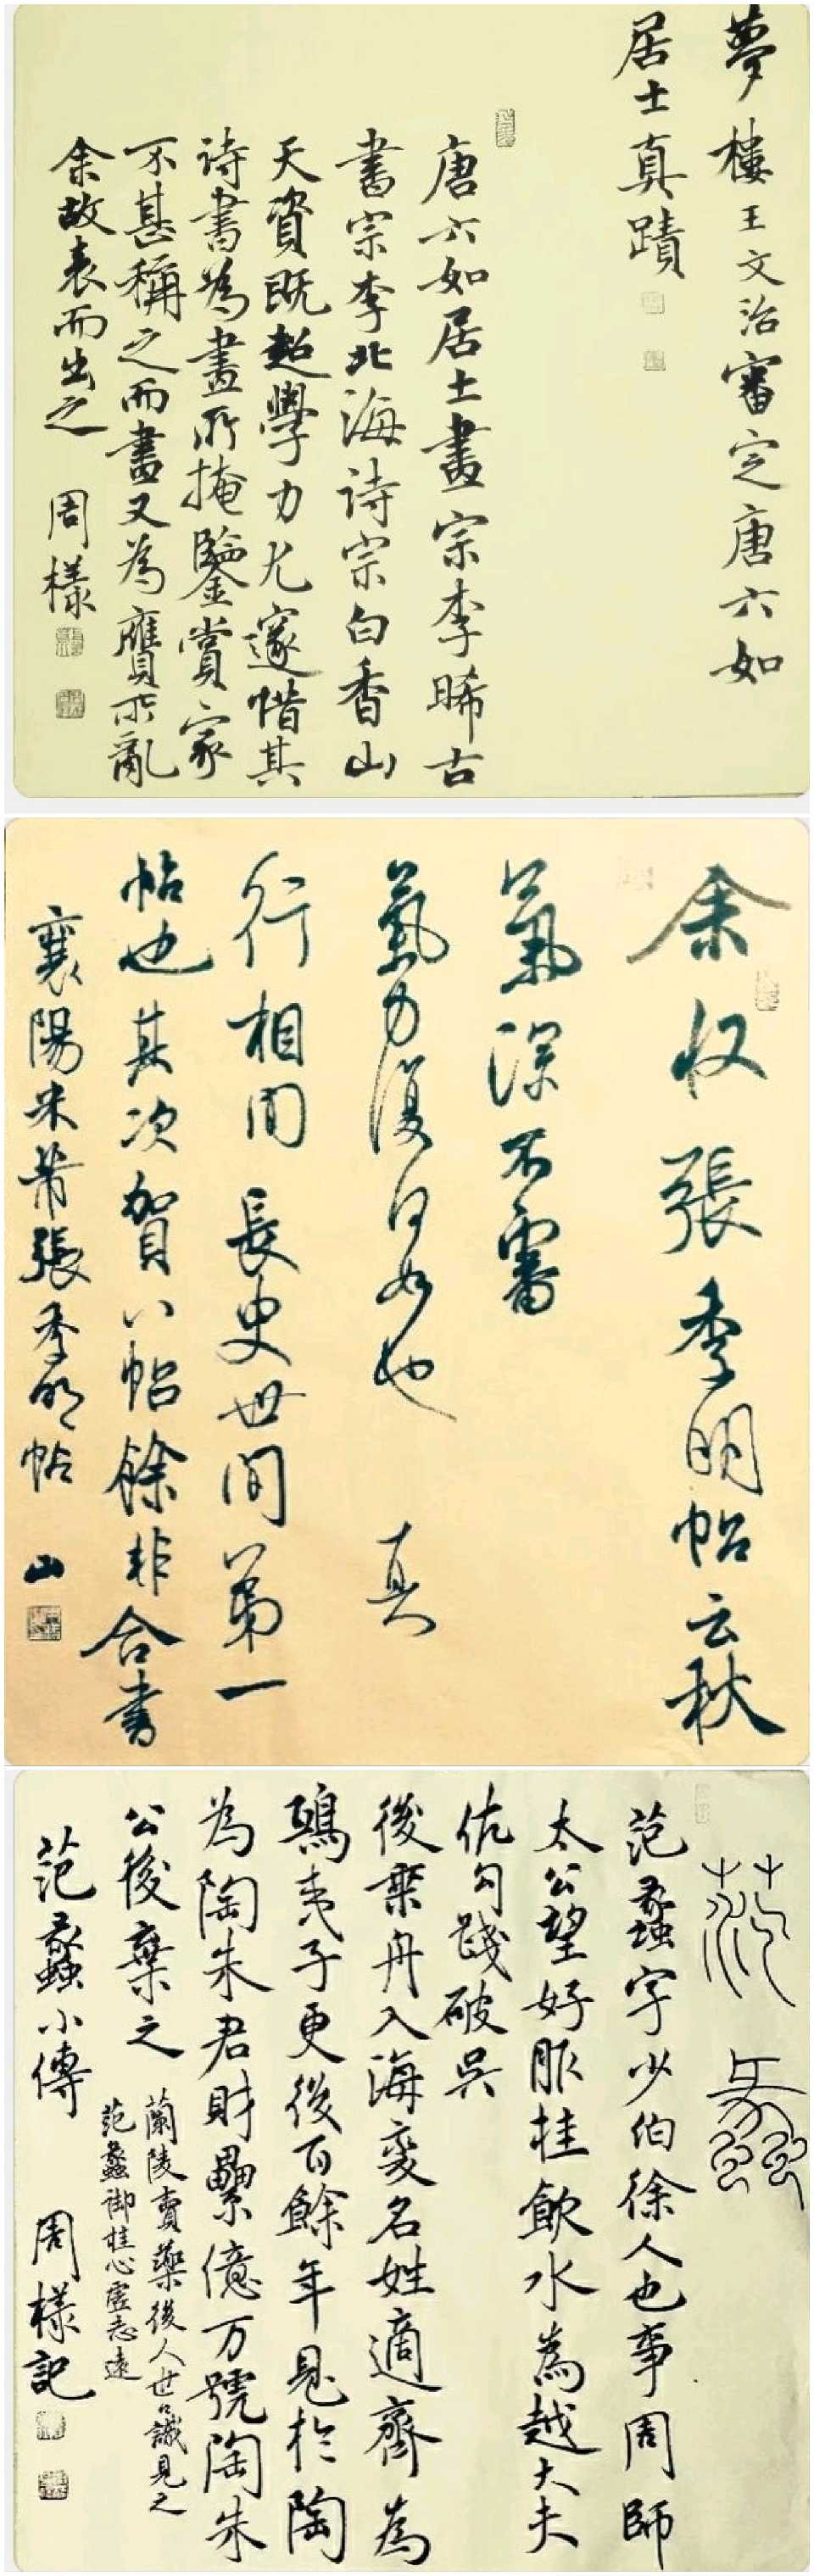 夢樓王文治審定唐六如
居士真蹟
唐六如居士畫宗李晞古
書宗李北海詩宗白香山
天資既超學力尤邃惜其
詩書為畫所掩鑒賞家
不甚稱之而畫又為贗所亂
余故表而出之 周樣
余收張季明帖云秋
氣深不審
氣力復何如也 真
行相間 長史世間第一
帖也其次賀八帖餘非合書
襄陽米芾張季明帖 山
范蠡
范蠡字少伯徐人也事周師
太公望好服桂飲水為越大夫
佐勾踐破吳
後乘舟入海變名姓適齊為
鴟夷子更後百餘年見於陶
為陶朱君財累億万號陶朱
公後棄之 蘭陵賣藥後人世世識見之
范蠡御桂心虛志遠
范蠡小傳 周樣記